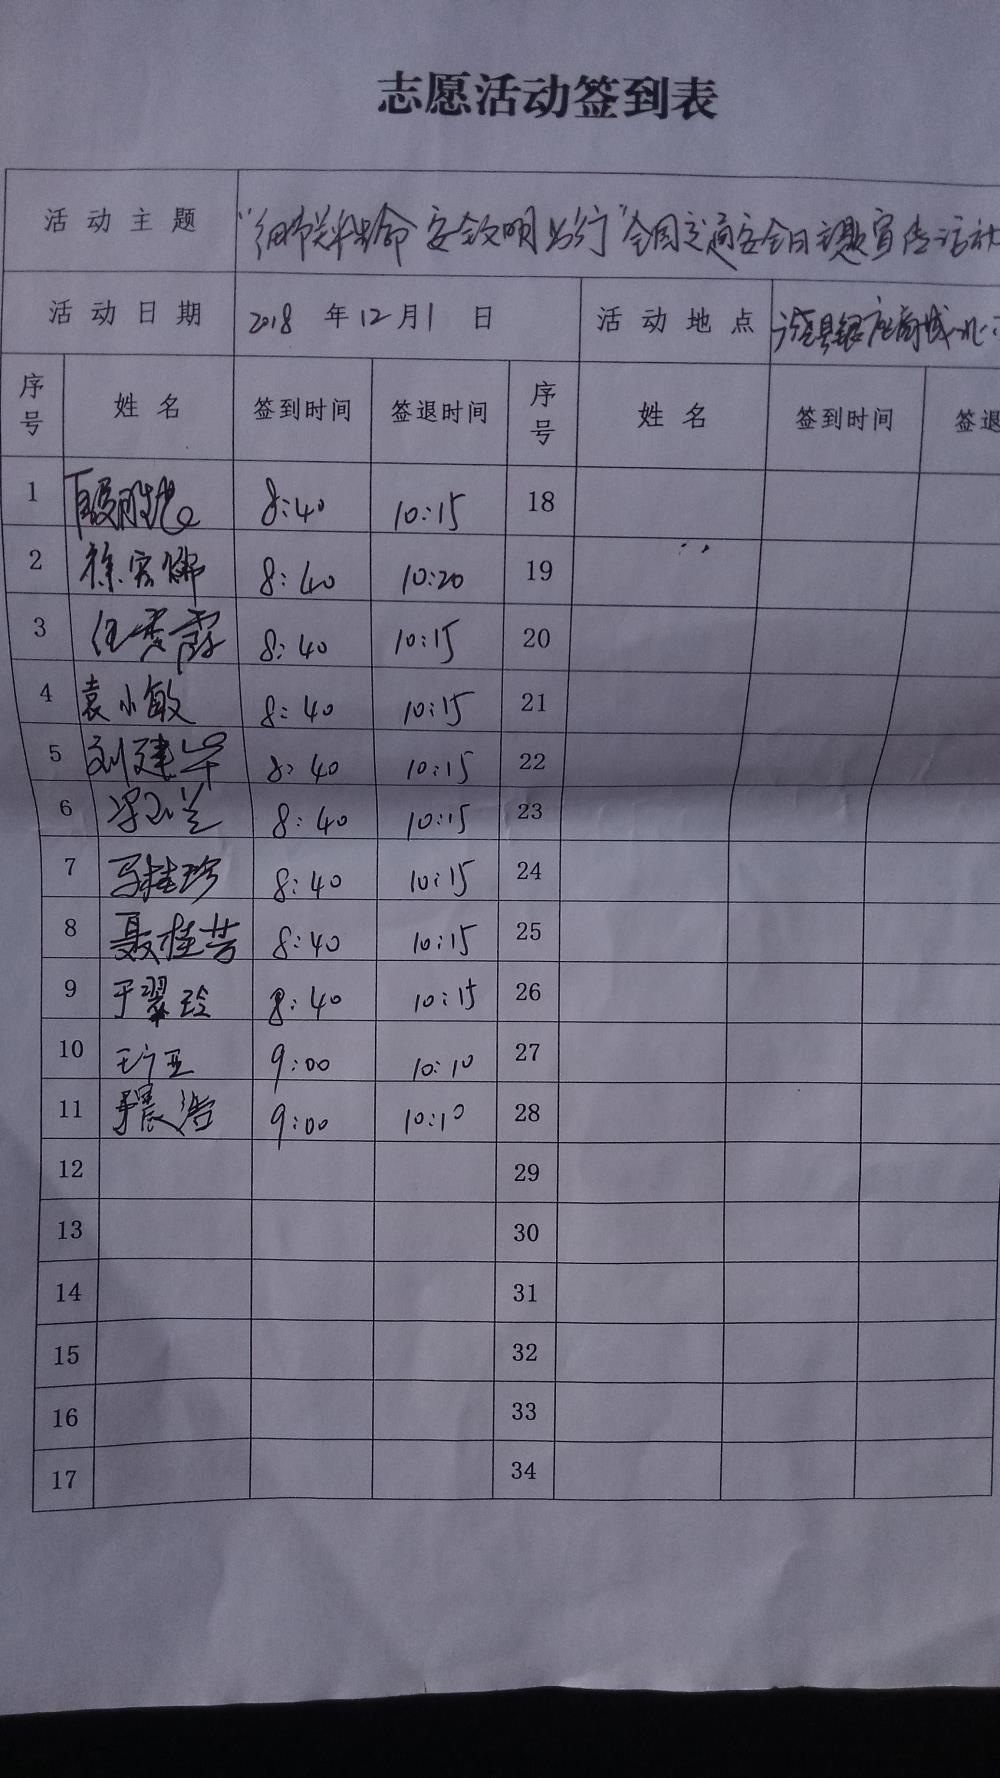 志愿活动签到表
活动主题 "细节关乎生命 安全文明出行"全国交通安全日主题宣传活动
活动日期 2018 年 12 月 1 日 活动地点 县银座商城北
序号 姓名 签到时间 签退时间 序号 姓名 签到时间 签退
1 段 8:40 10:15 18
2 徐 8:40 10:20 19
3 任秀霞 8:40 10:15 20
4 袁小敏 8:40 10:15 21
5 刘建华 8:40 10:15 22
6 8:40 10:15 23
7 马桂珍 8:40 10:15 24
8 聂桂芳 8:40 10:15 25
9 于翠玲 8:40 10:15 26
10 9:00 10:10 27
11 9:00 10:10 28
12 29
13 30
14 31
15 32
16 33
17 34